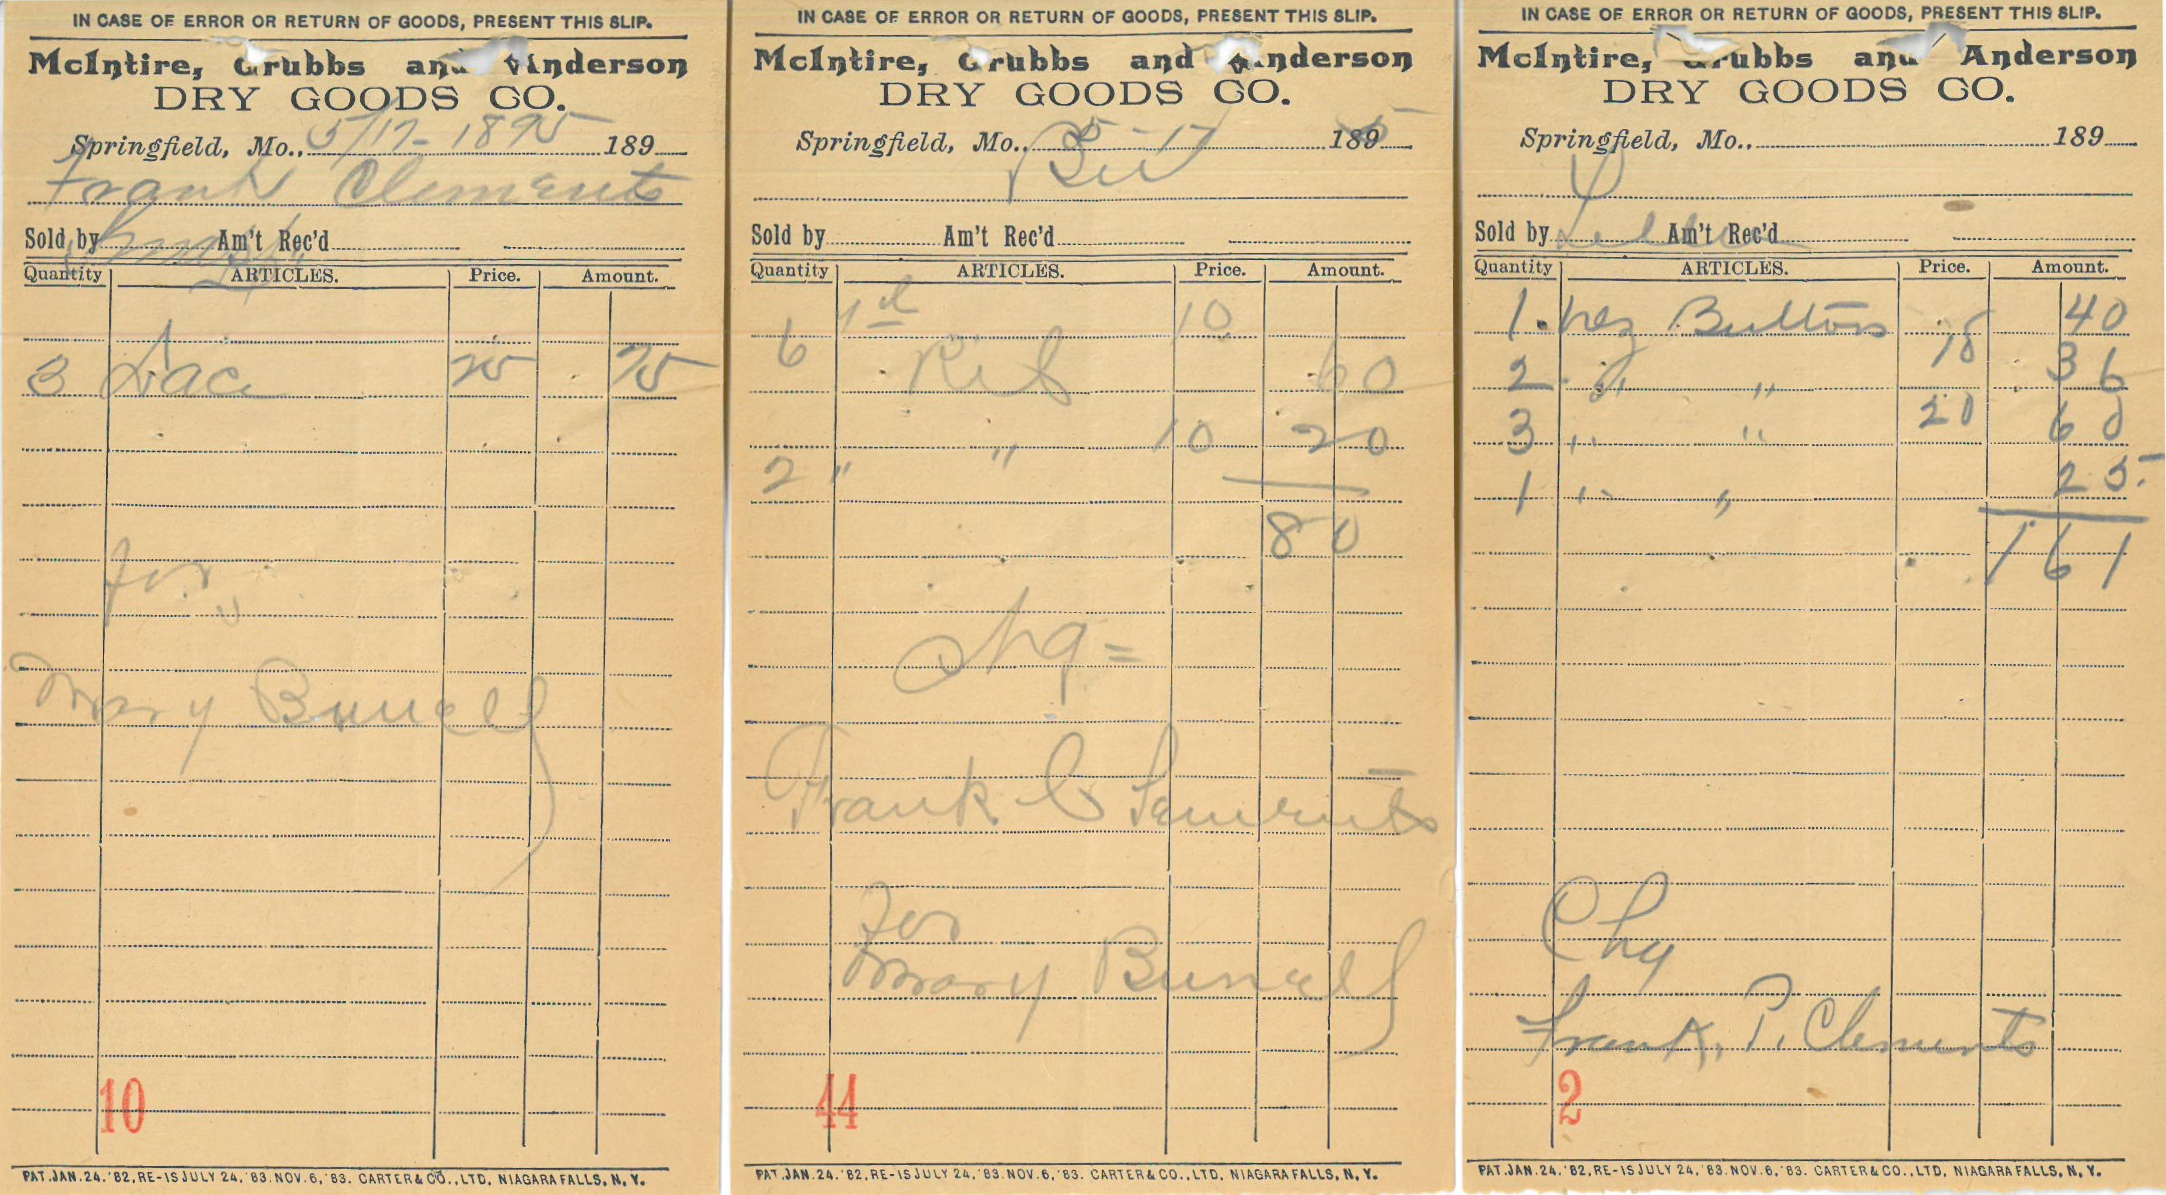 IN CASE OF ERROR OR RETURN OF GOODS, PRESENT THIS SLIP.
McIntire, Grubbs and Anderson
DRY GOODS CO.
Springfield, Mo., 5/17-1895 189
Frank Clements
Sold by Am't Rec'd
Quantity ARTICLES. Price. Amount.
3 Lace 25 75
for
Mary Bunell
10
PAT. JAN. 24. '82, RE-IS JULY 24, '83. NOV. 6, '83. CARTER & CO., LTD, NIAGARA FALLS, N. Y.
IN CASE OF ERROR OR RETURN OF GOODS, PRESENT THIS SLIP.
McIntire, Grubbs and Anderson
DRY GOODS CO.
Springfield, Mo., 5-17 1895
Sold by Am't Rec'd
Quantity ARTICLES. Price. Amount.
6 Rib 10 60
2 " " 10 20
80
Chg =
Frank Clements
for
Mary Bunell
44
PAT. JAN. 24. '82, RE-IS JULY 24, '83. NOV. 6, '83. CARTER & CO., LTD, NIAGARA FALLS, N. Y.
IN CASE OF ERROR OR RETURN OF GOODS, PRESENT THIS SLIP.
McIntire, Grubbs and Anderson
DRY GOODS CO.
Springfield, Mo., 189
Sold by Am't Rec'd
Quantity ARTICLES. Price. Amount.
1 Buttons 40
2 " " 18 36
3 " " 20 60
1 " " 25
161
Chg
Frank. P. Clements
2
PAT. JAN. 24. '82, RE-IS JULY 24, '83. NOV. 6, '83. CARTER & CO., LTD, NIAGARA FALLS, N. Y.